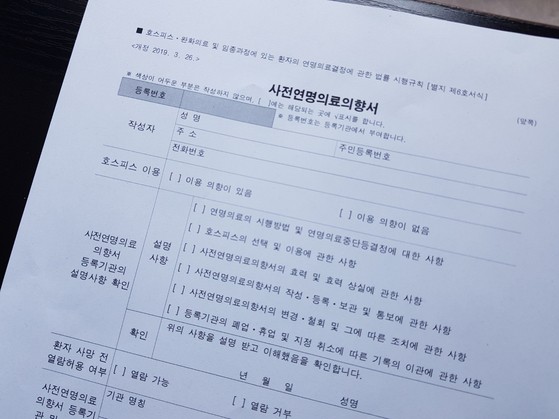 ■ 호스피스ㆍ완화의료 및 임종과정에 있는 환자의 연명의료결정에 관한 법률 시행규칙 [별지 제6호서식]
<개정 2019. 3. 26.>
사전연명의료의향서
(앞쪽)
※ 색상이 어두운 부분은 작성하지 않으며, [ ]에는 해당되는 곳에 √표시를 합니다.
등록번호
※ 등록번호는 등록기관에서 부여합니다.
작성자
성 명
주민등록번호
주 소
전화번호
호스피스 이용
[ ] 이용 의향이 있음
[ ] 이용 의향이 없음
사전연명의료
의향서
등록기관의
설명사항 확인
설명
사항
[ ] 연명의료의 시행방법 및 연명의료중단등결정에 대한 사항
[ ] 호스피스의 선택 및 이용에 관한 사항
[ ] 사전연명의료의향서의 효력 및 효력 상실에 관한 사항
[ ] 사전연명의료의향서의 작성ㆍ등록ㆍ보관 및 통보에 관한 사항
[ ] 사전연명의료의향서의 변경ㆍ철회 및 그에 따른 조치에 관한 사항
[ ] 등록기관의 폐업ㆍ휴업 및 지정 취소에 따른 기록의 이관에 관한 사항
확인
위의 사항을 설명 받고 이해했음을 확인합니다.
년 월 일 성명
환자 사망 전
열람허용 여부
[ ] 열람 가능
[ ] 열람 거부
사전연명의료
의향서 등록기
관 및
기관 명칭